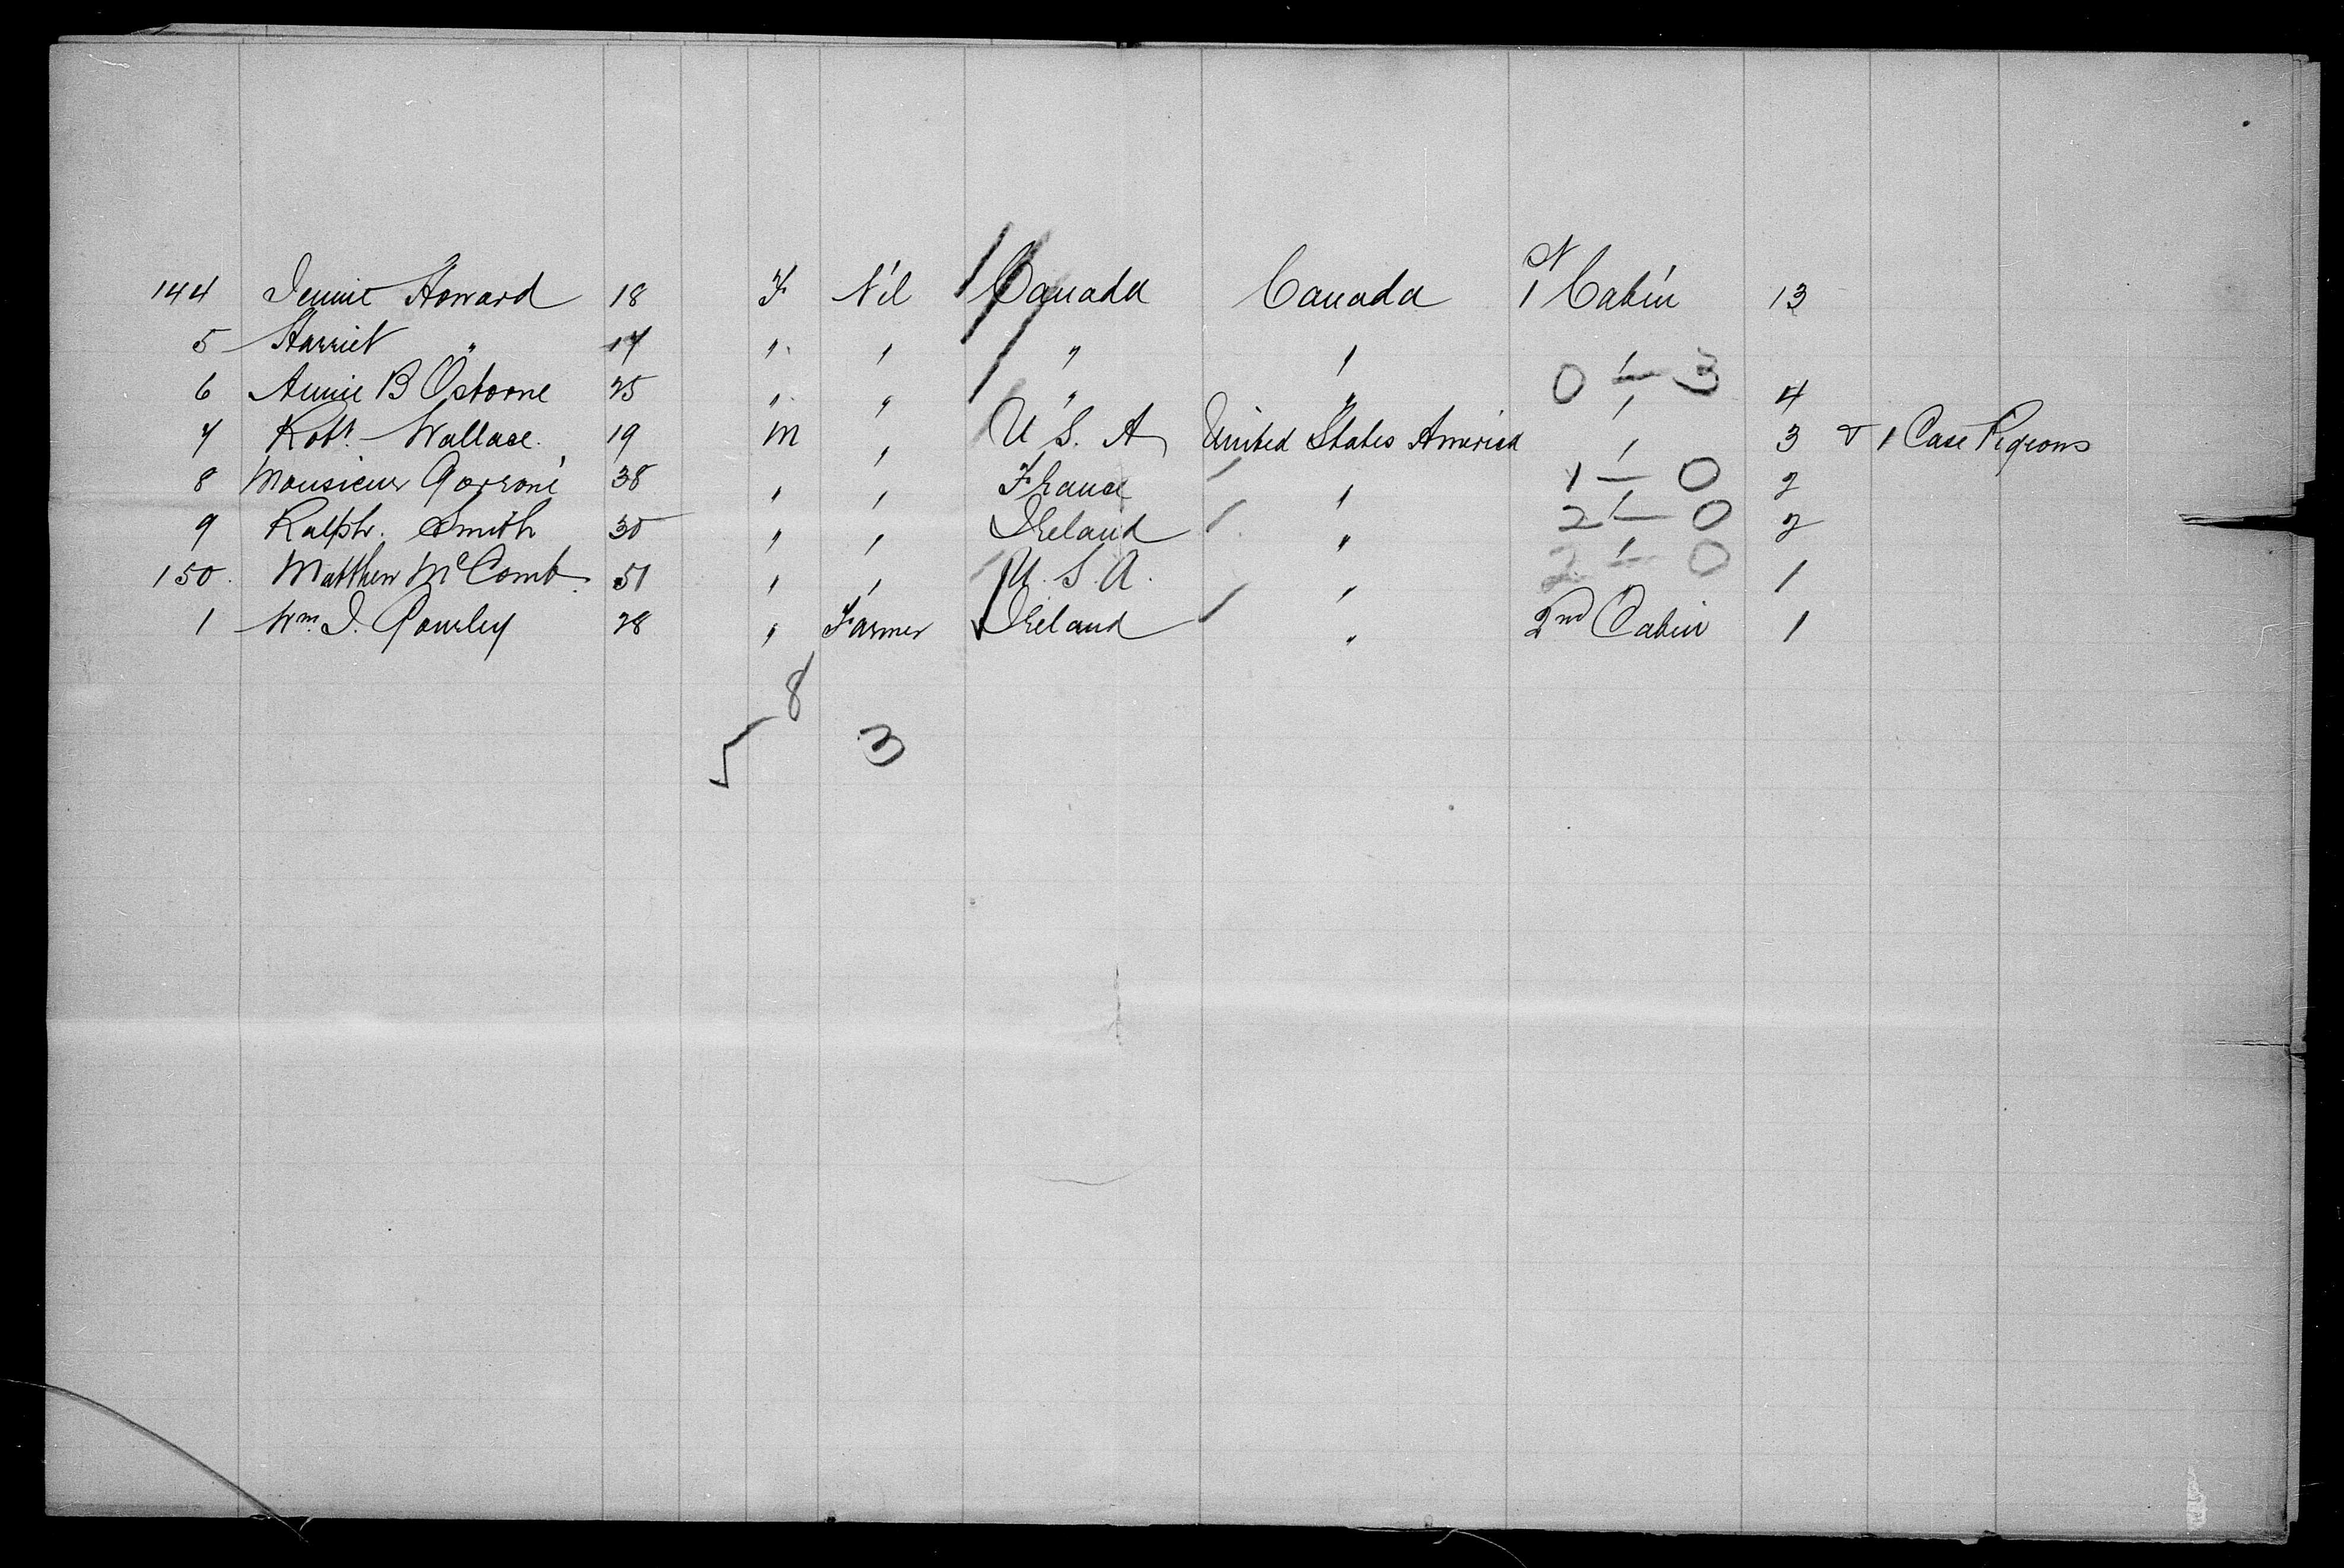 144 Jennie Howard 18 F Nil Canada Canada 1 Cabin 13
5 Harriet " 17 " " " "
6 Annie B Osborne 25 " " " " 0 — 3 4
7 Robt. Wallace. 19 M " U S. A United States America " 3 & 1 Case Pigeons
8 Monsieur 38 " " France " 1 — 0 2
9 Ralph. Smith 30 " " Ireland " 2 — 0 2
150. Matthew McComb. 51 " " U. S. A. " 2 — 0 1
1 Wm. J. Gourley 28 " Farmer Ireland " 2nd Cabin 1
8
5 3